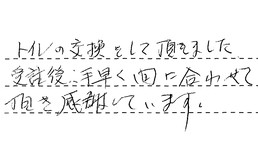 トイレの交換をして頂きました
受註後、手早く回に合わせて
頂き感謝しています。